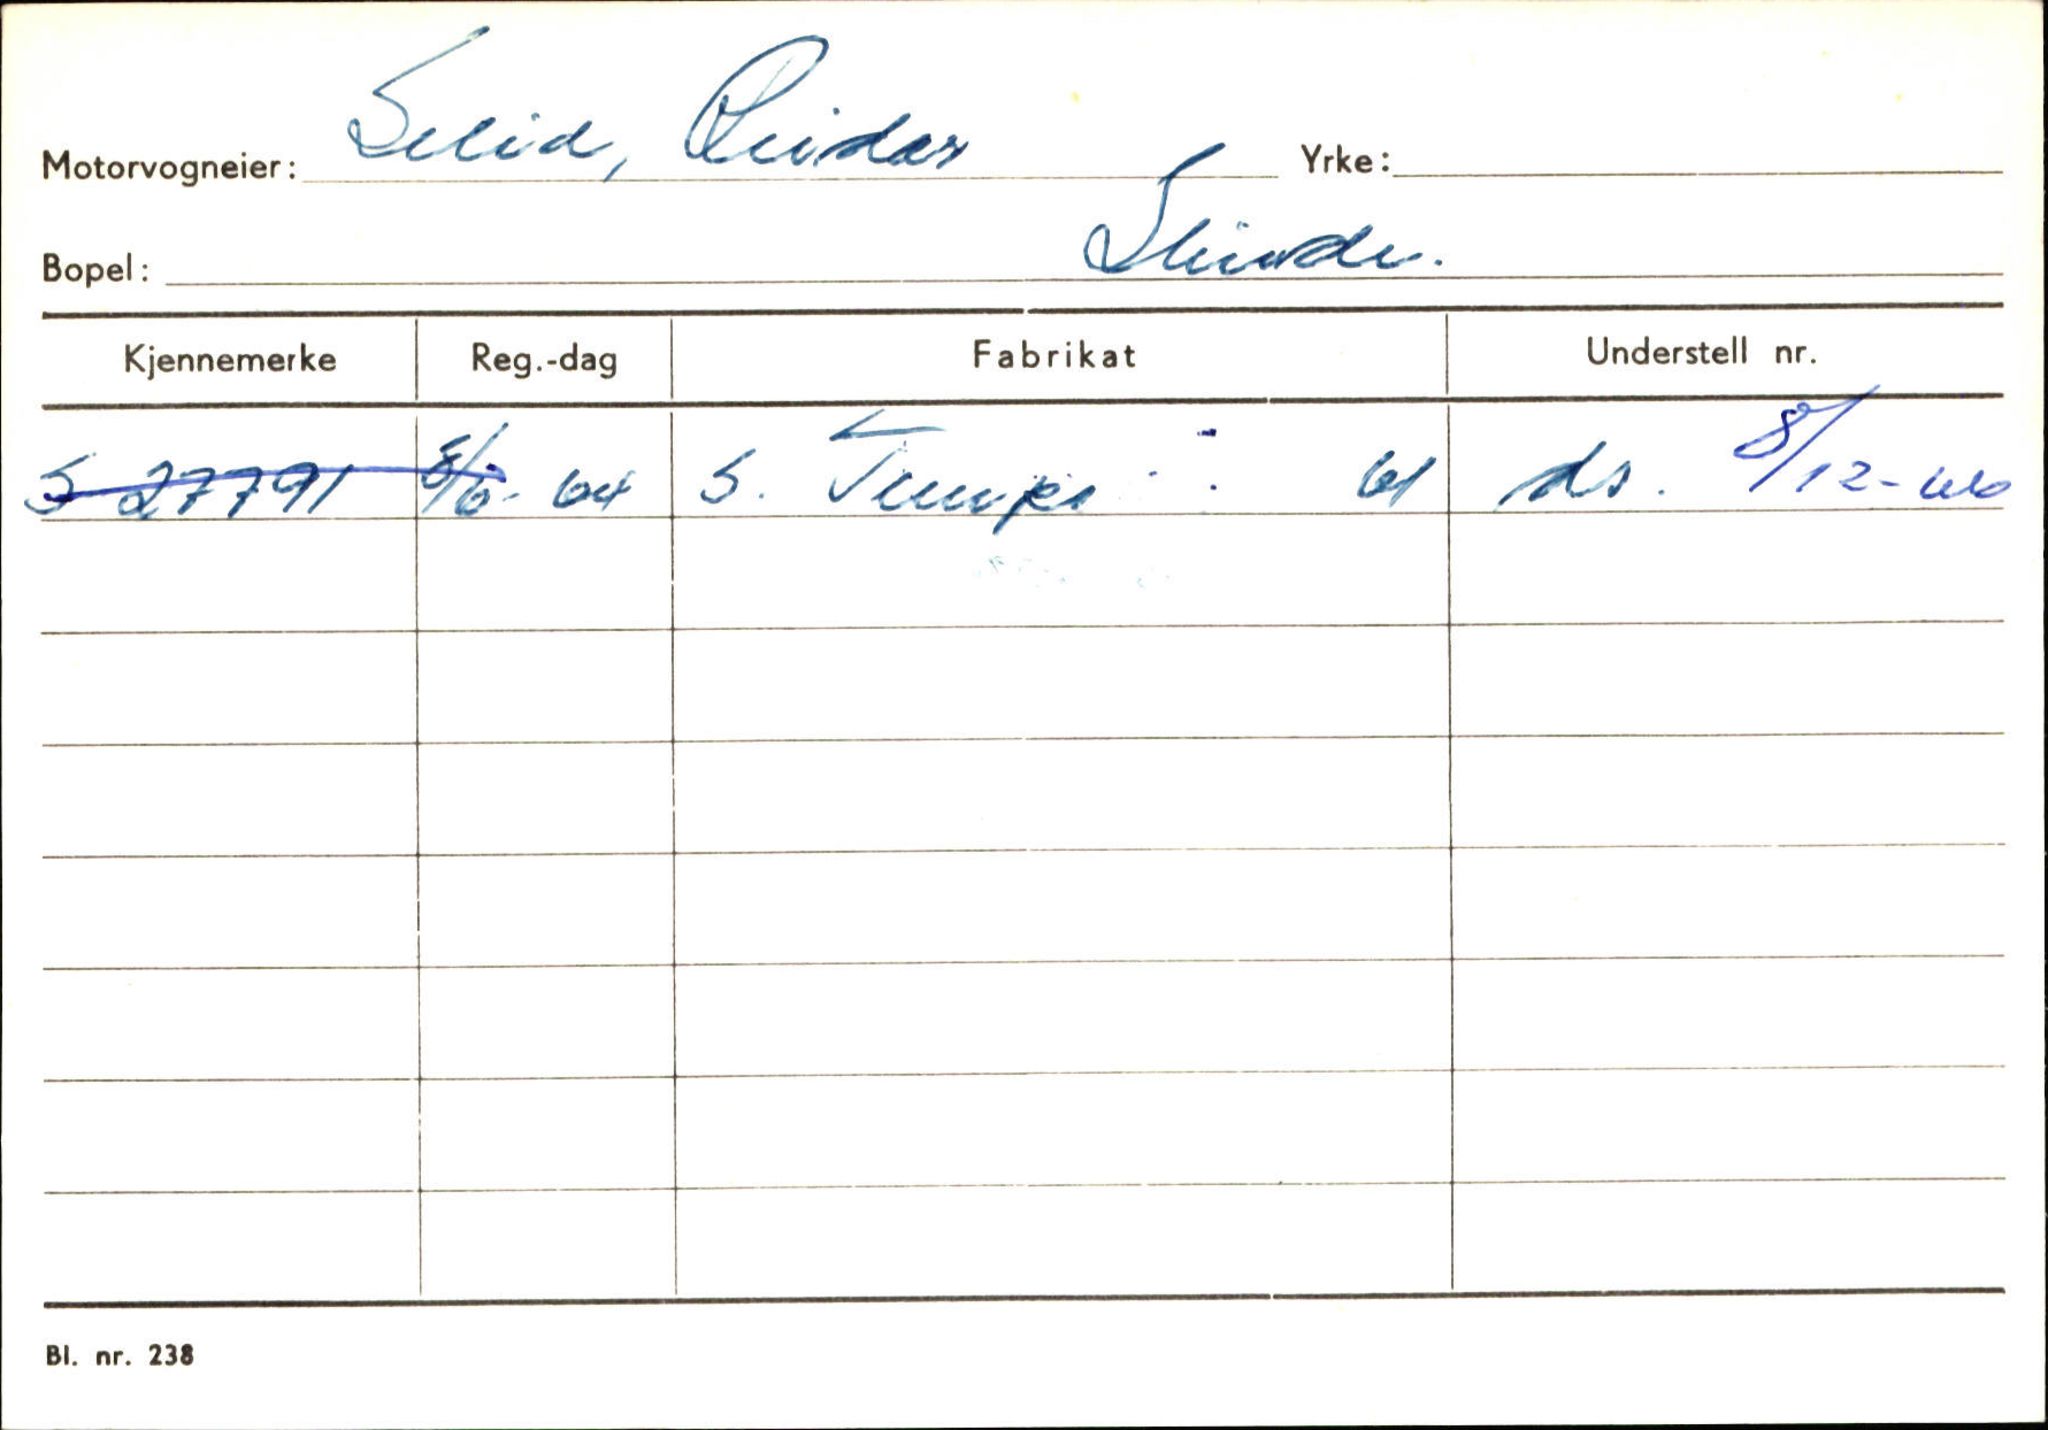 Motorvogneier: Selid, Reidar Yrke:
Bopel: Slinde.
Kjennemerke Reg.-dag Fabrikat Understell nr.
S 27791 8/6-64 S. Tempo 61 ds. 8/12-
Bl. nr. 238